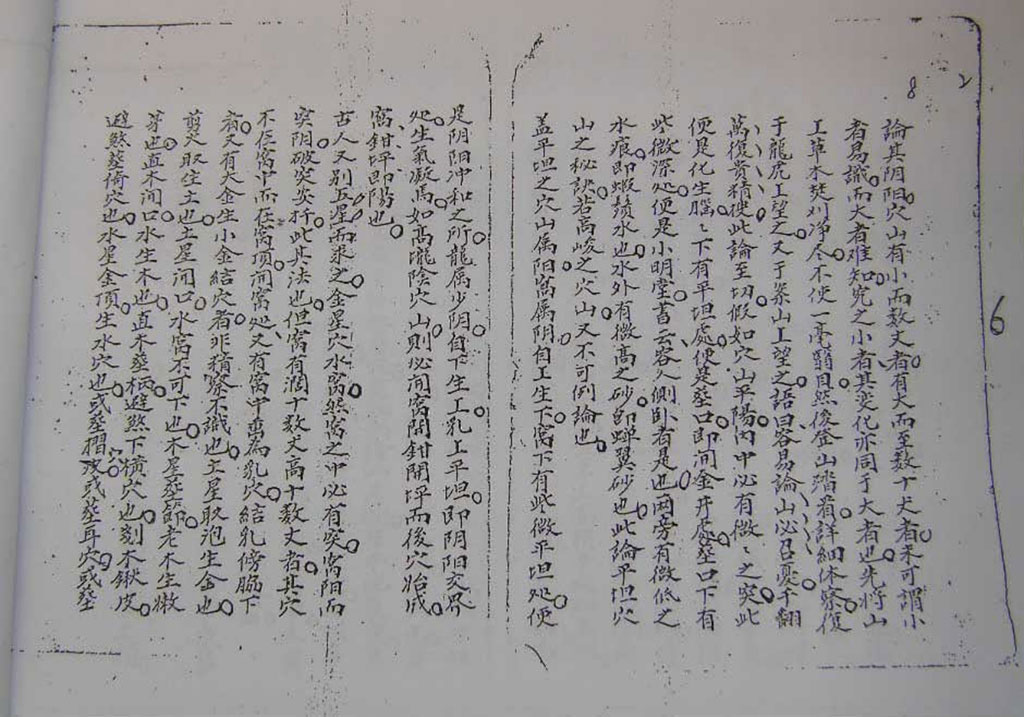 論其阴阳穴山有小而数丈者有大而至数十丈者未可謂小
者易識而大者难知究之小者其变化亦同于大者也先將山
工草木焚刈净尽不使一毫翳目然後登山踏看詳細体察復
于龍虎工望之又于案山工望之語曰容易論山必召憂千翻
萬復贵精使此論至切假如穴山平陽内中必有微〻之突此
便是化生腦〻下有平坦處便是塟口即间金井處塟口下有
些微深処便是小明堂書云容人側卧者是也兩旁有微低之
水痕即蝦鬚水也水外有微高之砂即蟬翼砂也此論平坦穴
山之秘訣若高峻之穴山又不可例論也
盖平坦之穴山属阳窩属阴自工生下窩下有些微平坦処便
是阴阳冲和之所龍属少阴自下生工乳上平坦即阴阳交界
処生氣凝焉如高隴陰穴山則必间窩開鉗開坪而後穴始成
窩鉗坪即陽也
古人又别五星而求之金星穴水窩然窩之中必有突窩阳而
突阴破突安扦此其法也但窩有濶十数丈高十数丈者其穴
不在窩中而在窩項间窩処又有窩中垂為乳穴結乳傍脇下
者又有大金生小金結穴者非積察不識也土星取泡生金也
剪火取住土也土星间口水窩不可下也木星塟節老木生嫩
芽也直木间口水生木也直木塟柄避煞下橫穴也刻木鍬皮
避煞塟倚穴也水星金頂生水穴也或塟摺或塟耳穴或塟
8
2
6